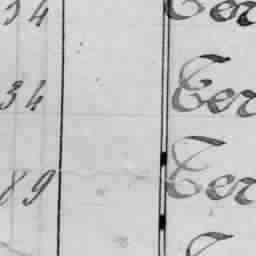 34 Ter
34 Ter
89 Ter